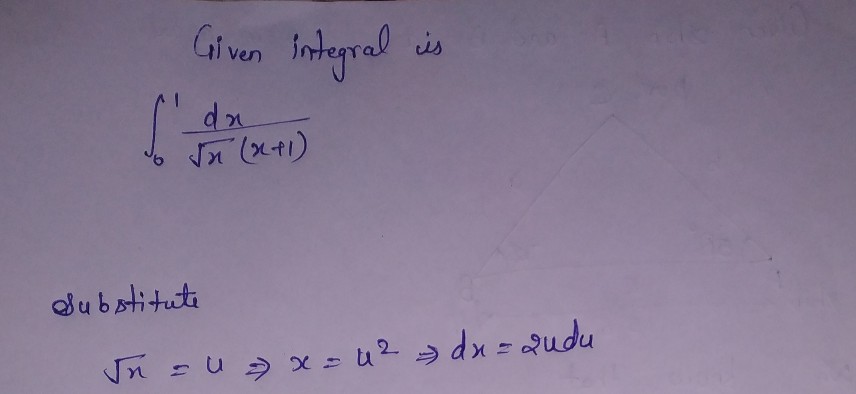 Given integral is
∫₀¹ dx / √x (x+1)
Substitute
√x = u ⇒ x = u² ⇒ dx = 2udu